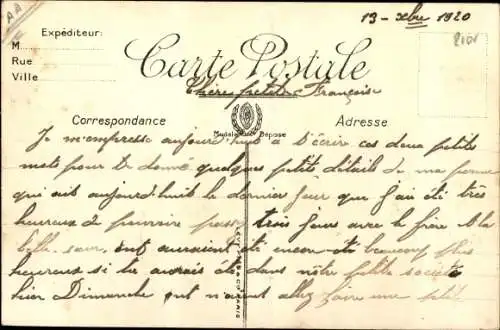 13 - Xbre 1920
Expéditeur:
M
Rue
Ville
Carte Postale
Chère petite Françoise
Correspondance
Adresse
Modèle Déposé
Je m'empresse aujourd'hui a t'écrire ces deux petits
mots pour te donné quelques petits détails de ma
qui ait aujourd'hui le dernier jour que j'ai été très
heureux de pouvoir passé trois jours avec le frère et la
belle sœur, ont auraient été encore été beaucoup plus
heureux si tu aurais été dans notre petite société
hier Dimanche ont n'aient allez faire une petit